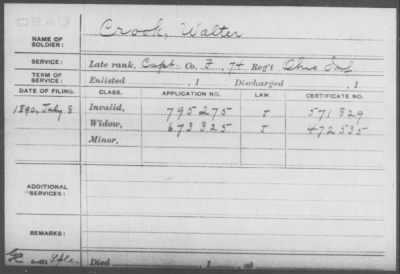 DEAD
NAME OF SOLDIER: Crook, Walter
SERVICE: Late rank, Capt. Co. F, 74 Reg't Ohio Inf
TERM OF SERVICE: Enlisted , 1 Discharged , 1
DATE OF FILING. CLASS. APPLICATION NO. LAW. CERTIFICATE NO.
1890, July 8 Invalid, 795275 J 571829
Widow, 673325 J 472535
Minor,
ADDITIONAL SERVICES:
REMARKS:
Died , 1 , at